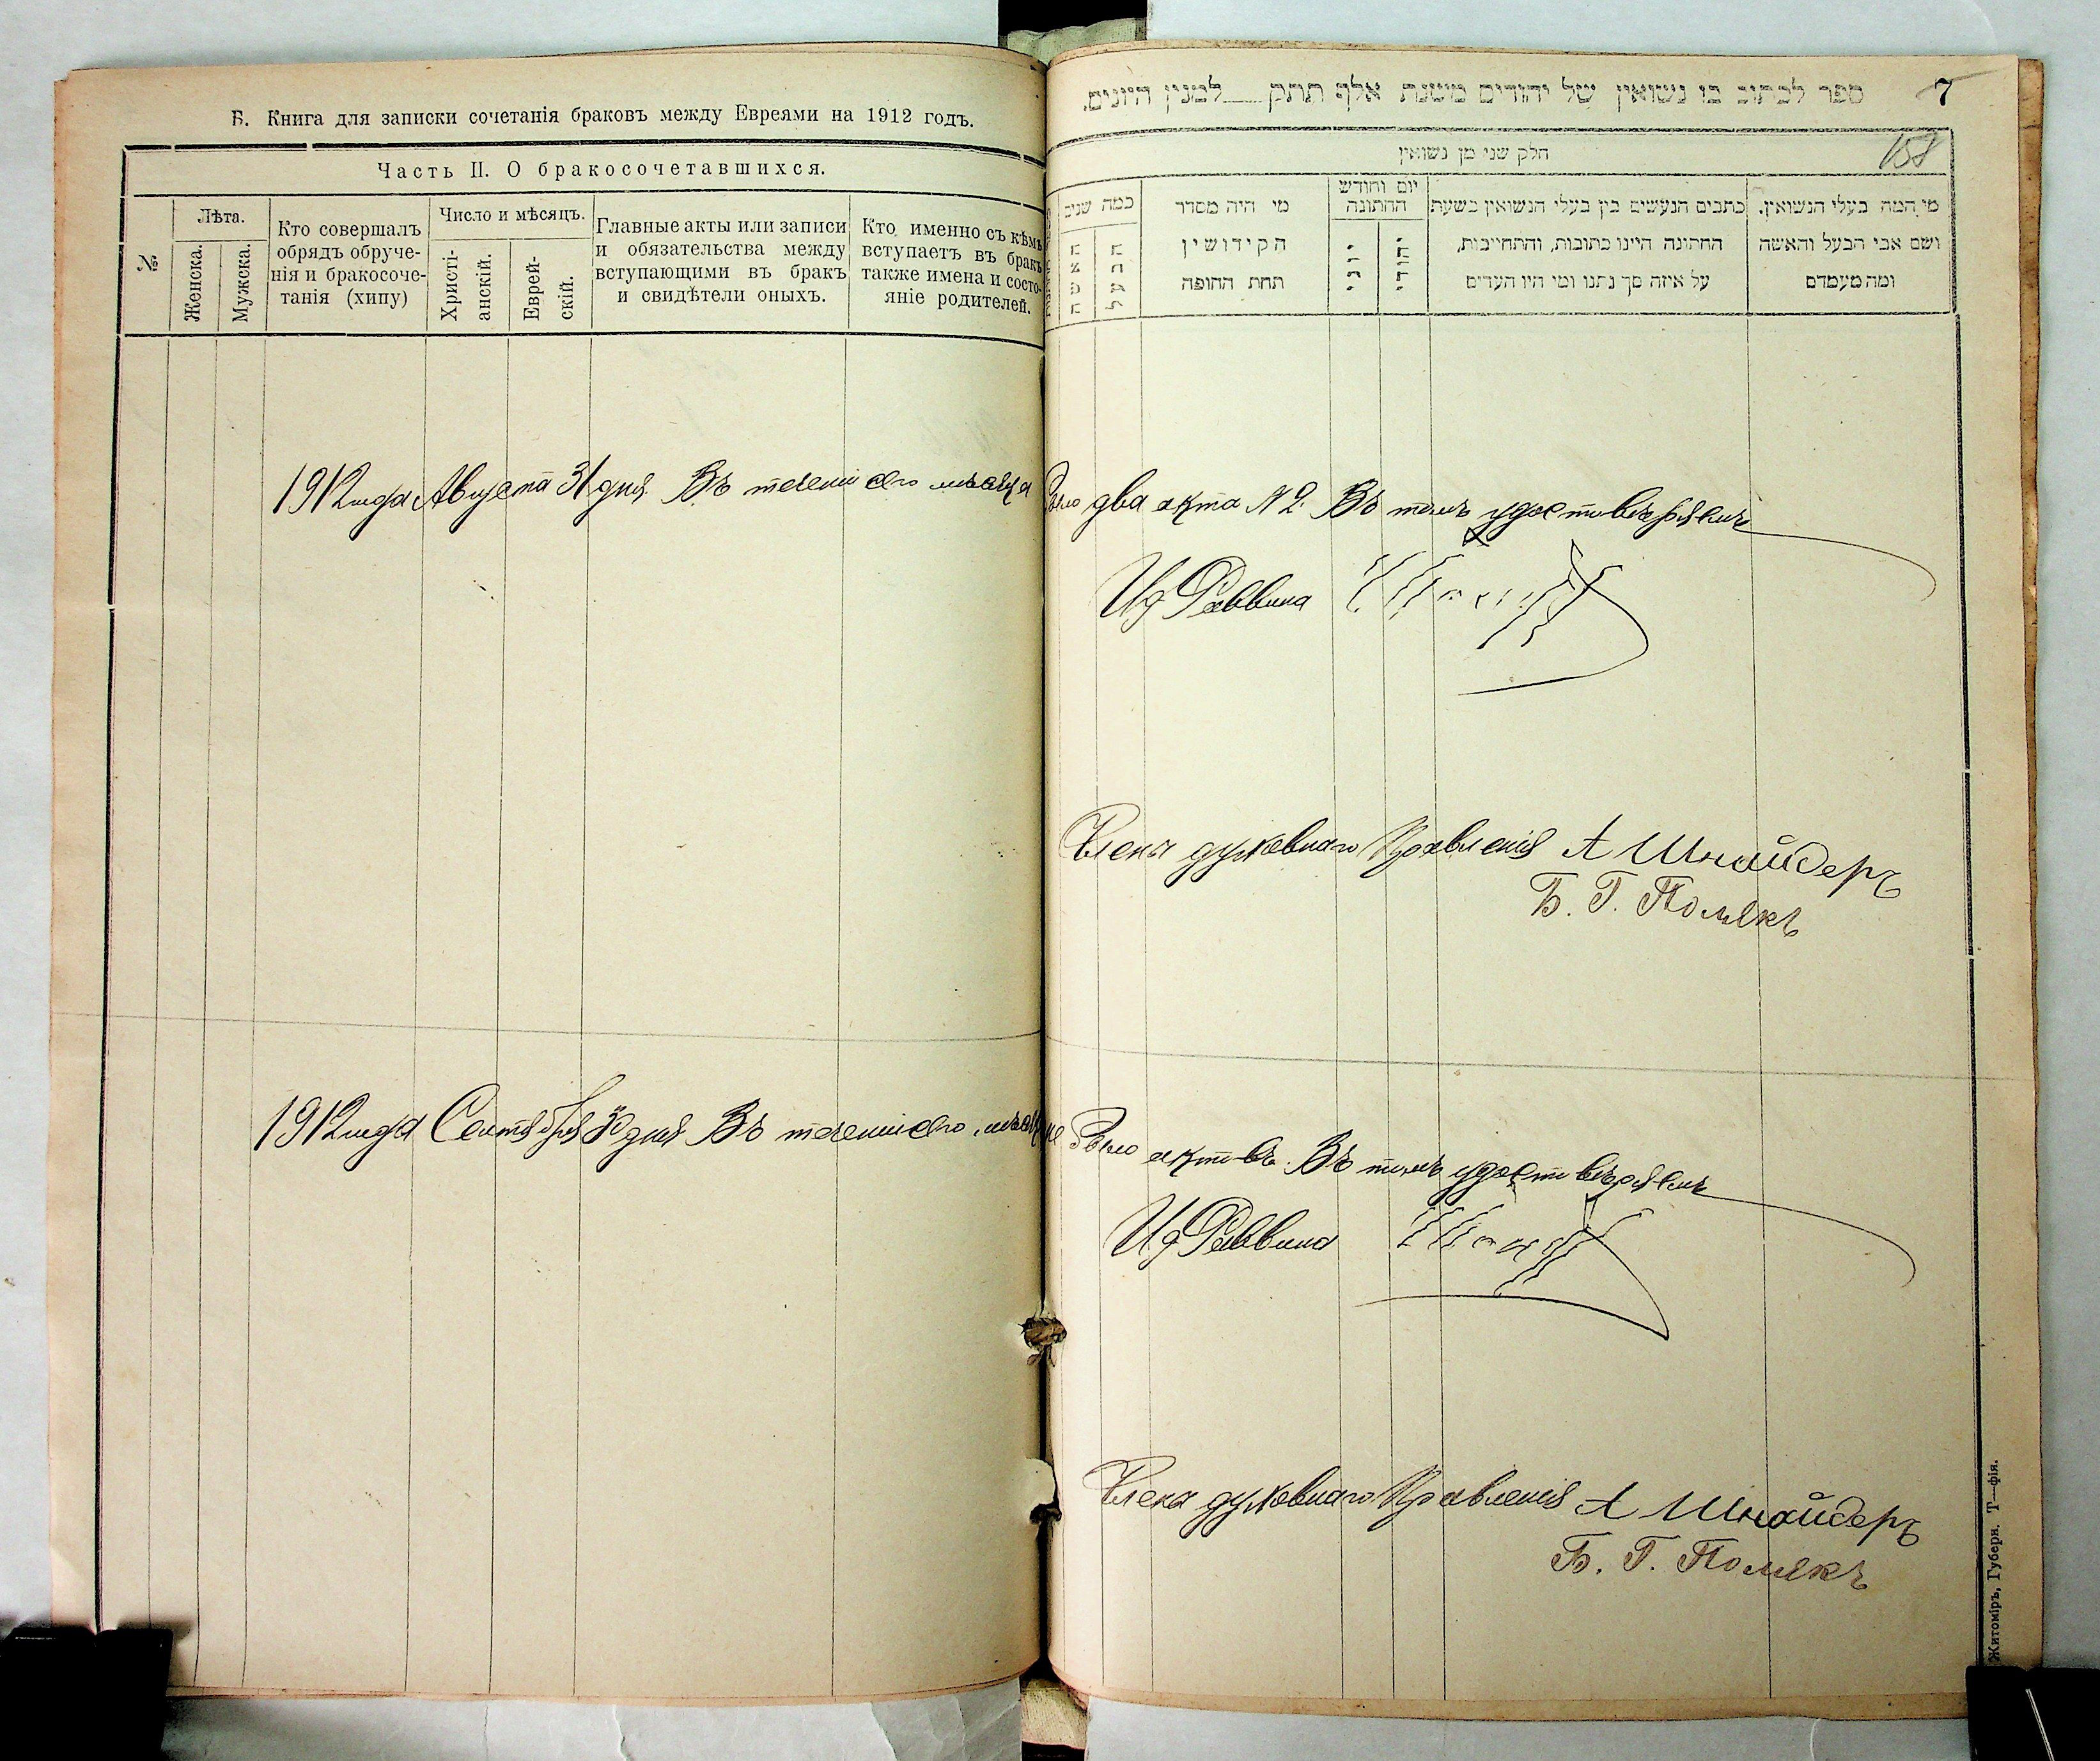 Б. Книга для записки сочетанія браковъ между Евреями на 1912 годъ.
Часть II. О бракосочетавшихся.
№
Лѣта.
Женска.
Мужска.
Кто совершалъ
обрядъ обруче-
нія и бракосоче-
танія (хипу)
Число и мѣсяцъ.
Христі-
анскій.
Еврей-
скій.
Главные акты или записи
и обязательства между
вступающими въ бракъ
и свидѣтели оныхъ.
Кто именно съ кѣмъ
вступаетъ въ бракъ
также имена и состо-
яніе родителей.
ספר לכתוב בו נשואין של יהודים משנת אלף תתק למנין היונים.
7
158
חלק שני מן נשואין
מי המה בעלי הנשואין.
ושם אבי הבעל והאשה
ומה מעמדם
כתבים הנעשים בין בעלי הנשואין בשעת
החתונה היינו כתובות, והתחייבות,
על איזה סך נתנו ומי היו העדים
יום וחודש
החתונה
יהודי
יוני
מי היה מסדר
הקידושין
תחת החופה
כמה שנים
הבעל
האשה
1912 года Августа 31 дня. Въ теченіи сего мѣсяца было два акта № 2. Въ томъ удостовѣряемъ
Ид Раввина
Члены духовнаго Правленія А Шнайдеръ
Б. Г. Полякъ
1912 года Сентября 30 дня Въ теченіи сего мѣсяца не было актовъ. Въ томъ удостовѣряемъ
Ид Раввина
Члены духовнаго Правленія А Шнайдеръ
Б. Г. Полякъ
Житоміръ, Губерн. Т—фія.